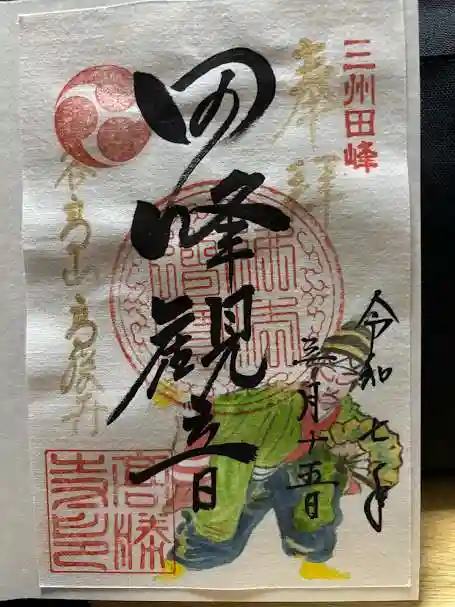 三州田峰
奉拝
田峰観音
谷高山高勝寺
令和七年
三月十五日